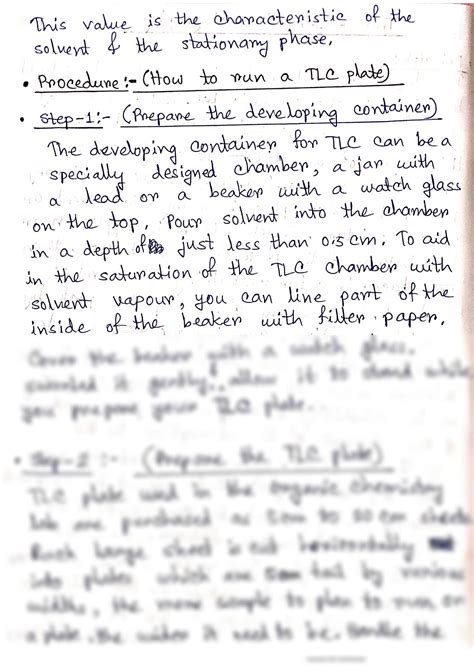 This value is the characteristic of the
solvent & the stationary phase.
• Procedure:- (How to run a TLC plate)
• Step-1:- (Prepare the developing container)
The developing container for TLC can be a
specially designed chamber, a jar with
a lead or a beaker with a watch glass
on the top, Pour solvent into the chamber
in a depth of just less than 0.5 cm. To aid
in the saturation of the TLC chamber with
solvent vapour, you can line part of the
inside of the beaker with filter paper.
Cover the beaker with a watch glass,
it gently, allow it to stand while
you prepare your TLC plate.
• Step-2 :- (Prepare the TLC plate)
TLC plate used in the organic chemistry
lab are purchased as 5cm to 20 cm sheets
Each large sheet is cut horizontally
into plates which are 5cm tall by various
widths, the more sample to plan to run on
a plate, the wider it need to be. Handle the